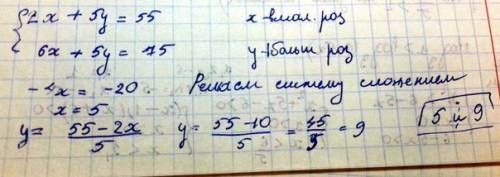 2x + 5y = 55 x - в мал. роз
6x + 5y = 75 y - 1 больш. роз
-4x = -20. Решаем систему сложением
x = 5
y = 55 - 2x / 5 y = 55 - 10 / 5 = 45 / 5 = 9 5 и 9